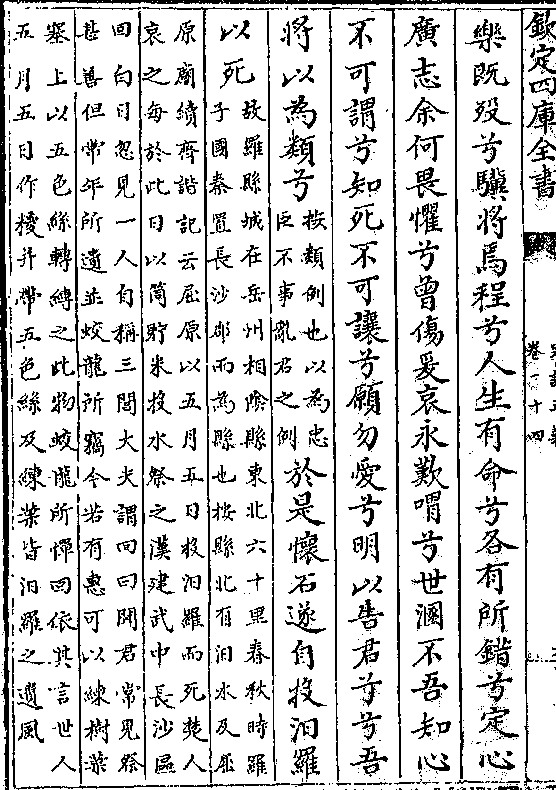 欽定四庫全書
卷八十四
樂既殁兮驥將焉程兮人生有命兮各有所錯兮定心
廣志余何畏懼兮曾傷爰哀永歎喟兮世溷不吾知心
不可謂兮知死不可讓兮願勿愛兮明以告君兮兮吾
將以為類兮
按類例也以為忠
臣不事亂君之例
於是懷石遂自投汨羅
以死
故羅縣城在岳州相陰縣東北六十里春秋時羅
子國秦置長沙郡而為縣也按縣北有汨水及屈
原廟續齊諧記云屈原以五月五日投汨羅而死楚人
哀之每於此日以筒貯米投水祭之漢建武中長沙區
回白日忽見一人自稱三閭大夫謂回曰聞君常見祭
甚善但常年所遺並蛟龍所竊今若有惠可以練樹葉
塞上以五色絲轉縛之此物蛟龍所憚回依其言世人
五月五日作糉并帶五色絲及練葉皆汨羅之遺風